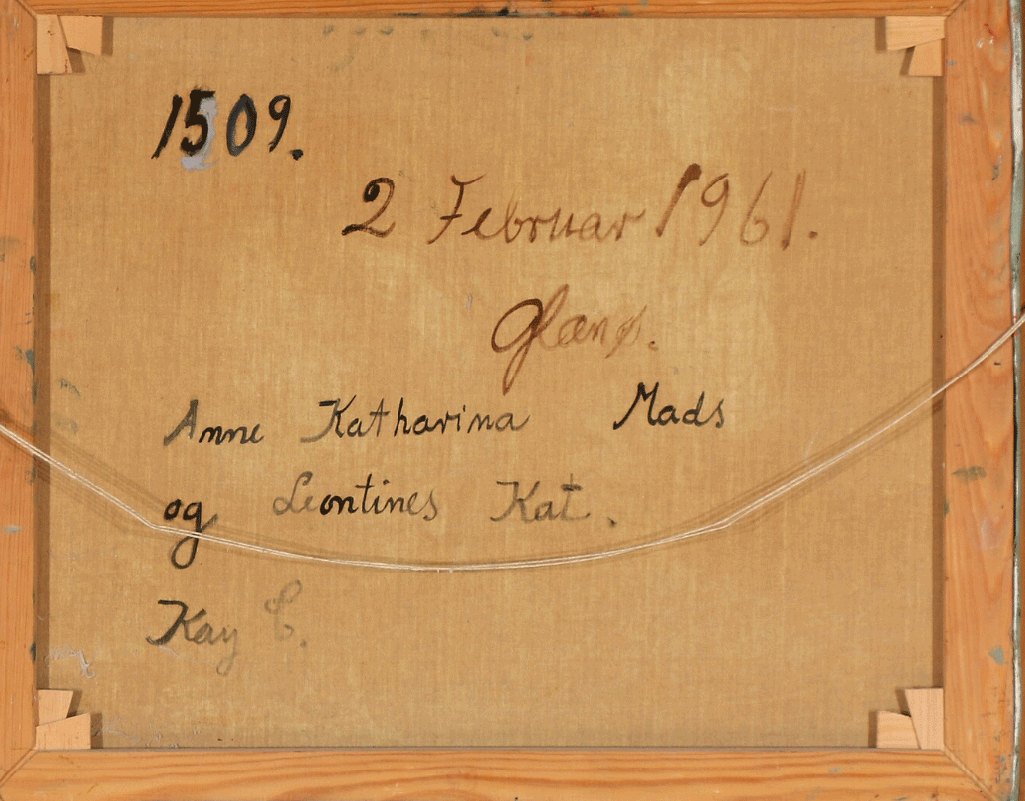 1509.
2 Februar 1961.
Glænø.
Anne Katharina Mads
og Leontines Kat.
Kay C.